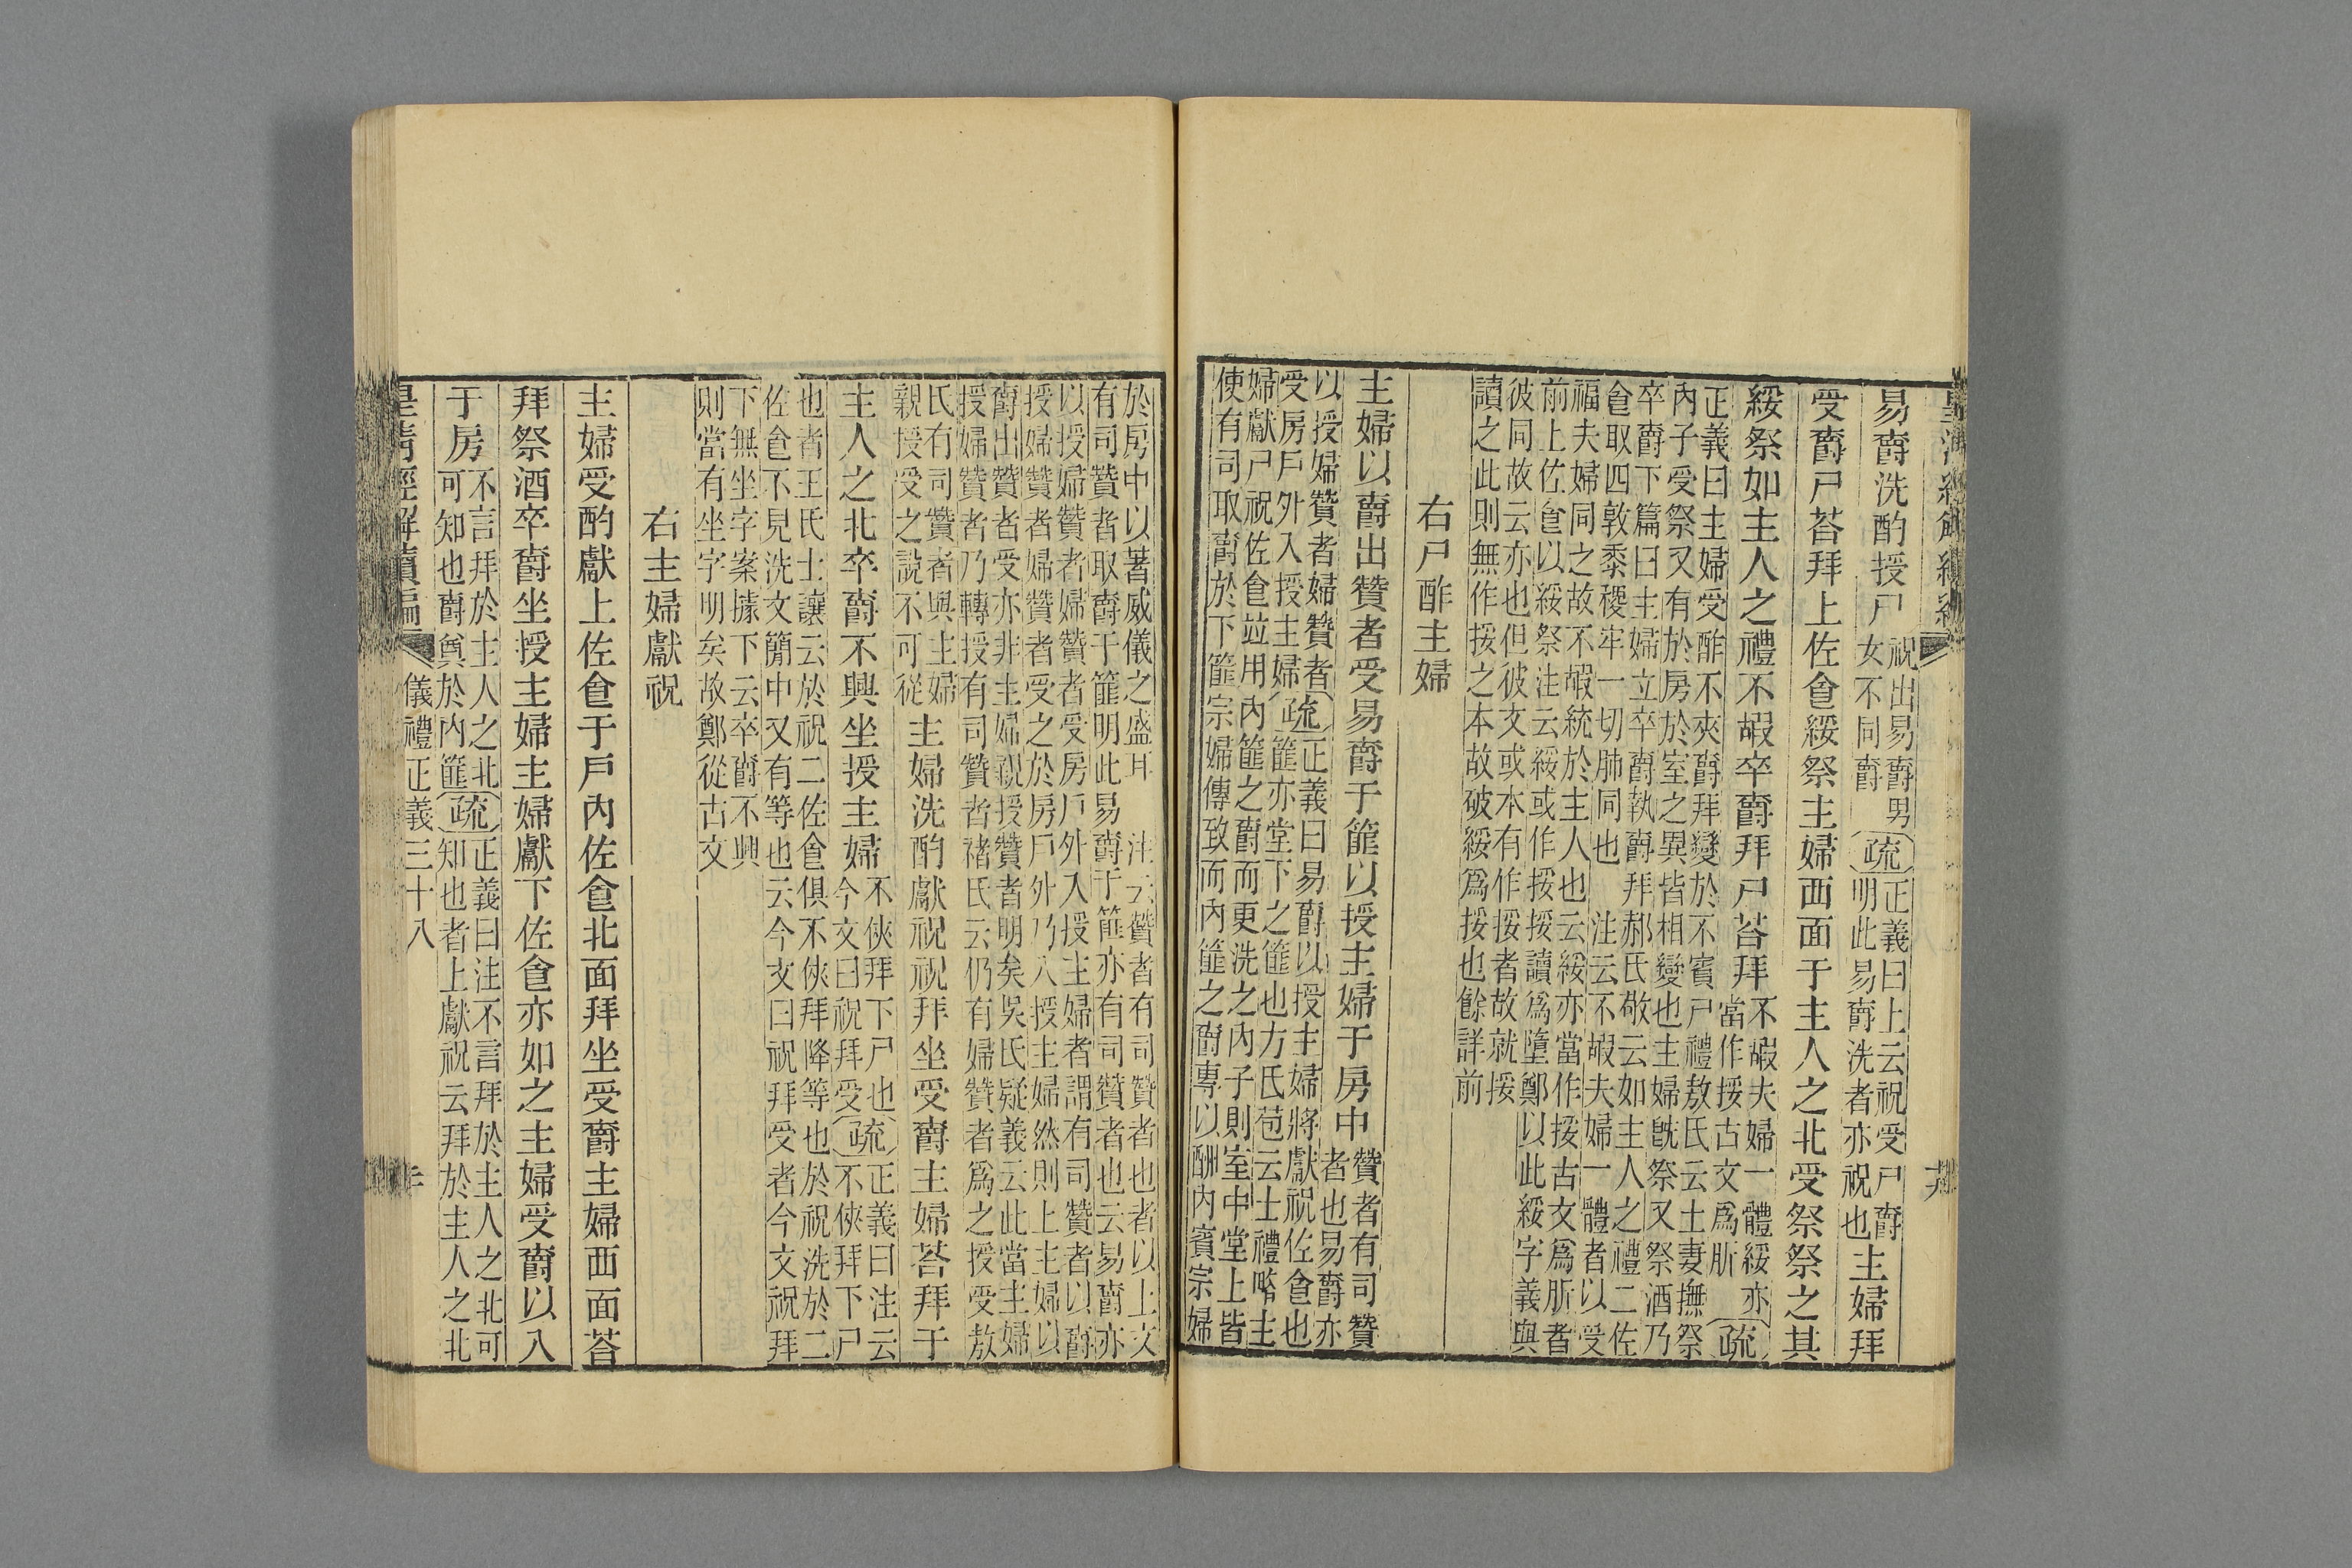 易爵洗酌授尸祝出易爵男女不同爵疏正義曰上云祝受尸爵明此易爵洗者亦祝也主婦拜
受爵尸荅拜上佐食綏祭主婦西面于主人之北受祭祭之其
綏祭如主人之禮不嘏卒爵拜尸荅拜不嘏夫婦一體綏亦當作挼古文爲肵疏
正義曰主婦受酢不夾爵拜變於不賓尸禮敖氏云士妻撫祭
內子受祭又有於房於室之異皆相變也主婦旣祭又祭酒乃
卒爵下篇曰主婦立卒爵執爵拜郝氏敬云如主人之禮二佐
食取四敦黍稷牢一切肺同也　注云不嘏夫婦一體者以受
福夫婦同之故不嘏統於主人也云綏亦當作挼古文爲肵者
前上佐食以綏祭注云綏或作挼挼讀爲墮鄭以此綏字義與
彼同故云亦也但彼文或本有作挼者故就挼
讀之此則無作挼之本故破綏爲挼也餘詳前
右尸酢主婦
主婦以爵出贊者受易爵于篚以授主婦于房中贊者有司贊者也易爵亦
以授婦贊者婦贊者受房戶外入授主婦疏正義曰易爵以授主婦將獻祝佐食也
篚亦堂下之篚也方氏苞云士禮略主
婦獻尸祝佐食並用內篚之爵而更洗之內子則室中堂上皆
使有司取爵於下篚宗婦傳致而內篚之爵專以酬內賓宗婦
於房中以著威儀之盛耳　注云贊者有司贊者也者以上文
有司贊者取爵于篚明此易爵于篚亦有司贊者也云易爵亦
以授婦贊者婦贊者受房戶外入授主婦者謂有司贊者以爵
授婦贊者婦贊者受之於房戶外乃入授主婦然則上主婦以
爵出贊者受亦非主婦親授贊者明矣吳氏疑義云此當主婦
授婦贊者乃轉授有司贊者褚氏云仍有婦贊者爲之授受敖
氏有司贊者與主婦親授受之說不可從主婦洗酌獻祝祝拜坐受爵主婦荅拜于
主人之北卒爵不興坐授主婦不俠拜下尸也今文曰祝拜受疏正義曰注云不俠拜下尸
也者王氏士讓云於祝二佐食俱不俠拜降等也於祝洗於二
佐食不見洗文簡中又有等也云今文曰祝拜受者今文祝拜
下無坐字案據下云卒爵不興
則當有坐字明矣故鄭從古文
右主婦獻祝
主婦受酌獻上佐食于戶內佐食北面拜坐受爵主婦西面荅
拜祭酒卒爵坐授主婦主婦獻下佐食亦如之主婦受爵以入
于房不言拜於主人之北可知也爵奠於內篚疏正義曰注不言拜於主人之北可
知也者上獻祝云拜於主人之北
皇清經解續編　儀禮正義三十八